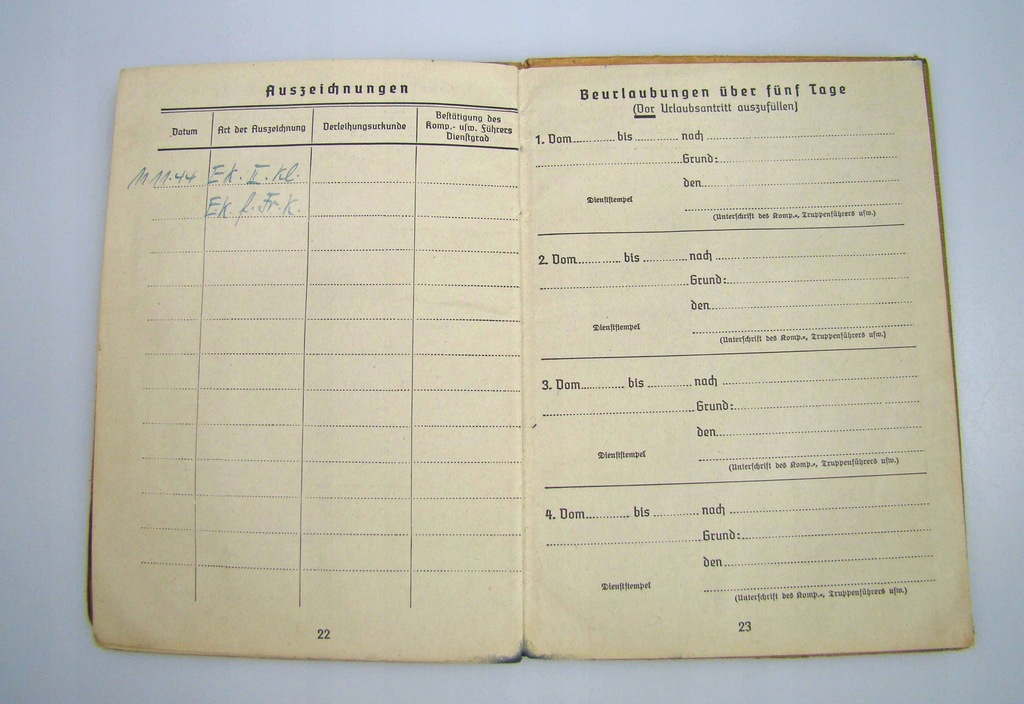 Auszeichnungen
Datum
Art der Auszeichnung
Verleihungsurkunde
Bestätigung des
Komp.- usw. Führers
Dienstgrad
11 11.44 EK. II. Kl.
EK.
22
Beurlaubungen über fünf Tage
(Vor Urlaubsantritt auszufüllen)
1. Vom bis nach
Grund:
den
Dienststempel
(Unterschrift des Komp.-, Truppenführers usw.)
2. Vom bis nach
Grund:
den
Dienststempel
(Unterschrift des Komp.-, Truppenführers usw.)
3. Vom bis nach
Grund:
den
Dienststempel
(Unterschrift des Komp.-, Truppenführers usw.)
4. Vom bis nach
Grund:
den
Dienststempel
(Unterschrift des Komp.-, Truppenführers usw.)
23